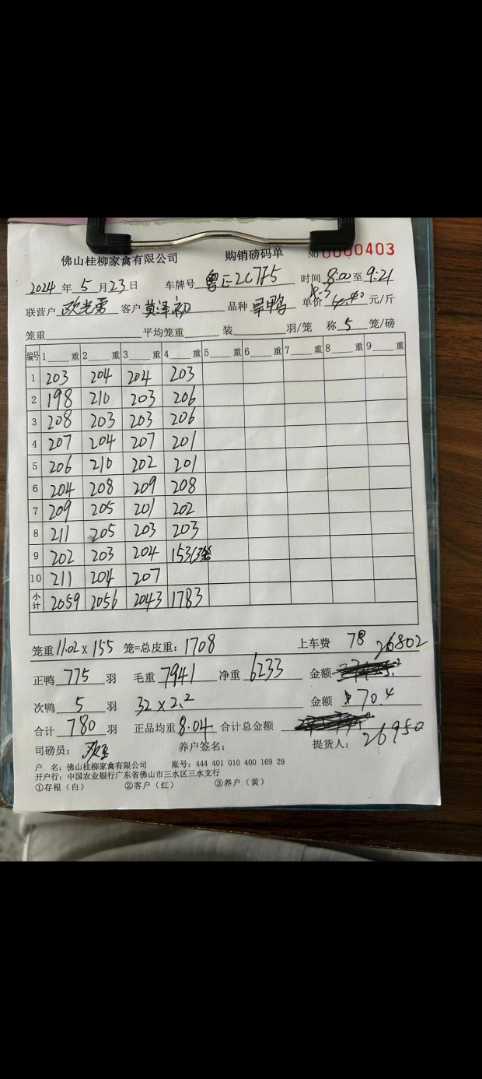 佛山桂柳家禽有限公司 购销磅码单 №0000403
2024年5月23日 车牌号 时间8:00至9:21
联营户 客户 莫泽初 品种 旱鸭 单价 4.3 元/斤
笼重 平均笼重 装 羽/笼 称5笼/磅
编号 1 重 2 重 3 重 4 重 5 重 6 重 7 重 8 重 9 重
1 203 204 204 203
2 198 210 203 206
3 208 203 203 206
4 207 204 207 201
5 206 210 202 201
6 204 208 209 208
7 209 205 201 202
8 211 205 203 203
9 202 203 204 153
10 211 204 207
小计 2059 2056 2043 1783
笼重11.02×155笼=总皮重:1708 上车费 78
26802
正鸭775羽 毛重7941 净重6233 金额
次鸭5羽 32×2.2 金额 70.4
合计780羽 正品均重8.04 合计总金额 26950
司磅员: 养户签名: 提货人:
户 名:佛山桂柳家禽有限公司 账号:444 401 010 400 169 29
开户行:中国农业银行广东省佛山市三水区三水支行
①存根(白) ②客户(红) ③养户(黄)